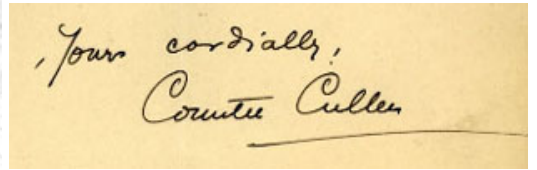 , Yours cordially,
Countee Cullen